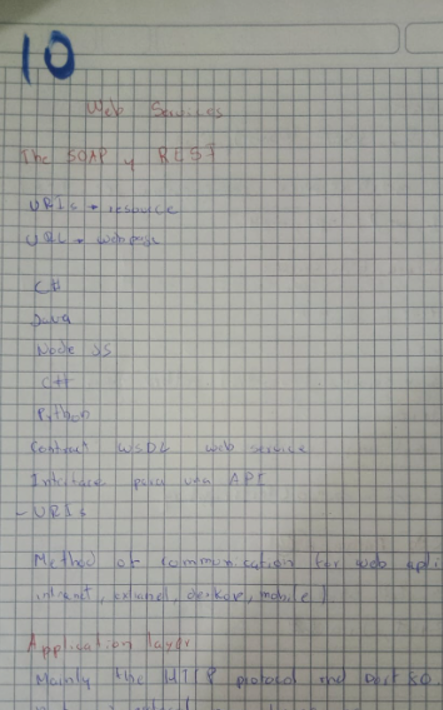 10
Web Services
The SOAP y REST
URIs → resource
URL → webpage
C#
Java
Node JS
C++
Python
Contract WSDL web service
Interface para una API
- URIs
Method of communication for web apli
intranet, extranet, mobile)
Application layer
Mainly the HTTP protocol and port 80.